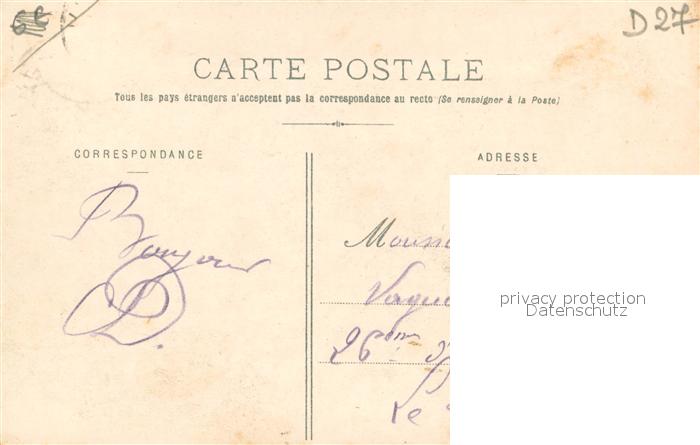 6e
D27
CARTE POSTALE
Tous les pays étrangers n'acceptent pas la correspondance au recto (Se renseigner à la Poste)
CORRESPONDANCE
ADRESSE
Bonjour
D.
privacy protection
Datenschutz
26me
Le